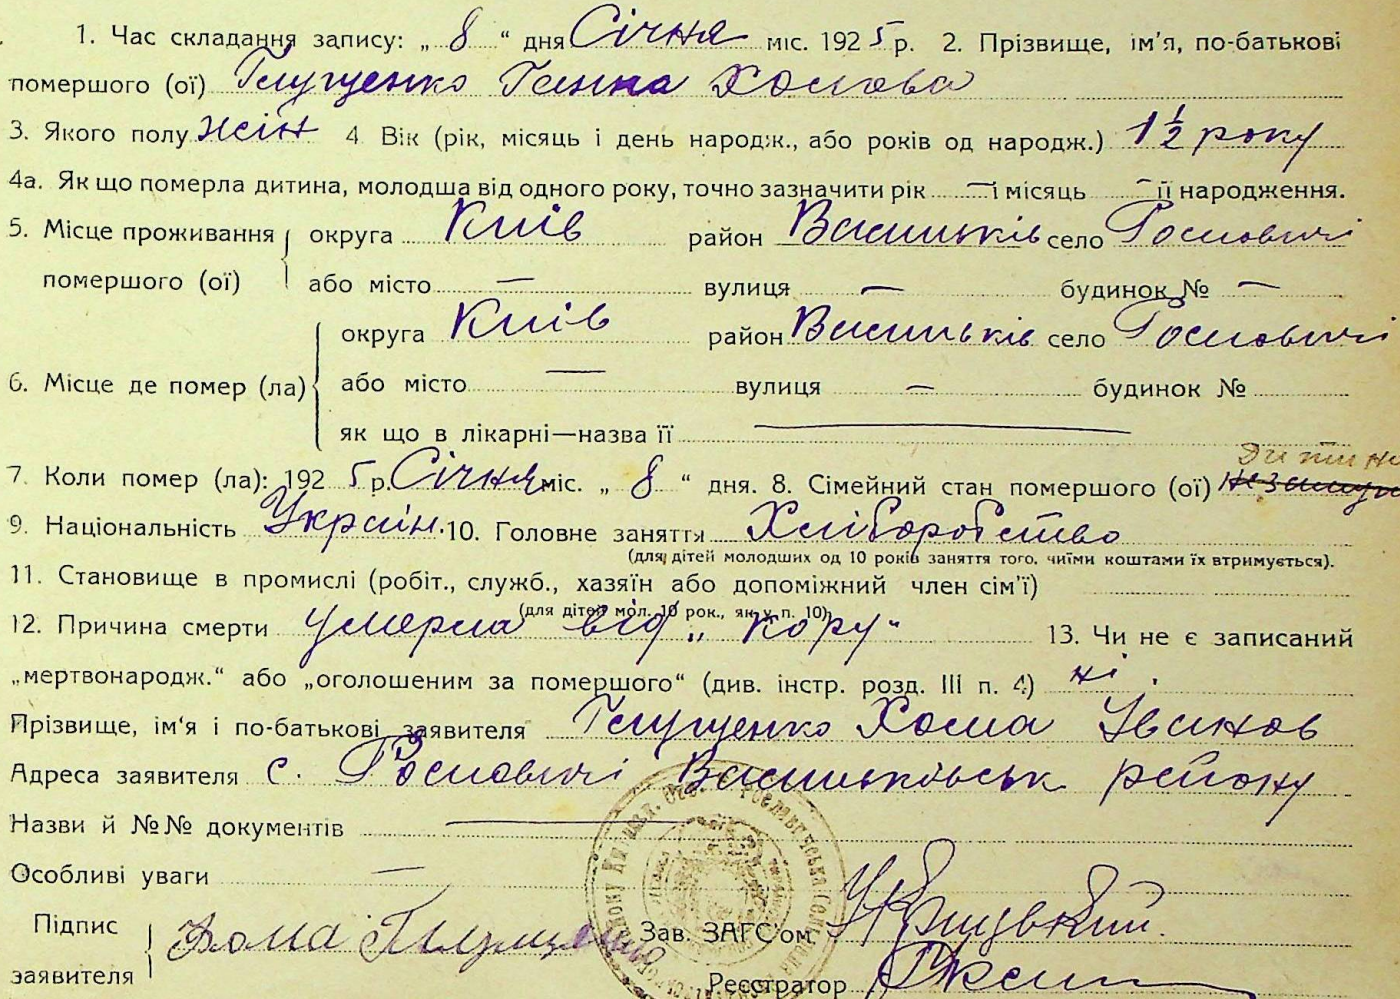 1. Час складання запису: „ 8 “ дня Січня міс. 1925 р. 2. Прізвище, ім'я, по-батькові
помершого (ої) Глущенко Ганна Хомова
3. Якого полу жін 4 Вік (рік, місяць і день народж., або років од народж.) 1½ року
4а. Як що померла дитина, молодша від одного року, точно зазначити рік — і місяць — її народження.
5. Місце проживання помершого (ої) округа Київ район Васильків село Рославичі
або місто — вулиця — будинок № —
6. Місце де помер (ла) округа Київ район Васильків село Рославичі
або місто — вулиця — будинок №
як що в лікарні—назва її —
дитина
7. Коли помер (ла): 1925 р. Січня міс. „ 8 “ дня. 8. Сімейний стан помершого (ої)
9. Національність Україн. 10. Головне заняття Хліборобство
(для дітей молодших од 10 років заняття того, чиїми коштами їх втримується).
11. Становище в промислі (робіт., служб., хазяїн або допоміжний член сім'ї)
(для дітей мол. 10 рок., як у п. 10)
12. Причина смерти умерла від „ кору “ 13. Чи не є записаний
„мертвонародж.“ або „оголошеним за помершого“ (див. інстр. розд. III п. 4) ні .
Прізвище, ім'я і по-батькові заявителя Глущенко Хома Іванов
Адреса заявителя с. Рославичі Васильківськ району
Назви й №№ документів —
Особливі уваги —
Підпис заявителя Хома Глущенко
Зав. ЗАГС'ом
Реєстратор